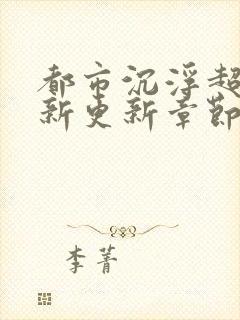 都市沉浮超
新更新章節
李菁